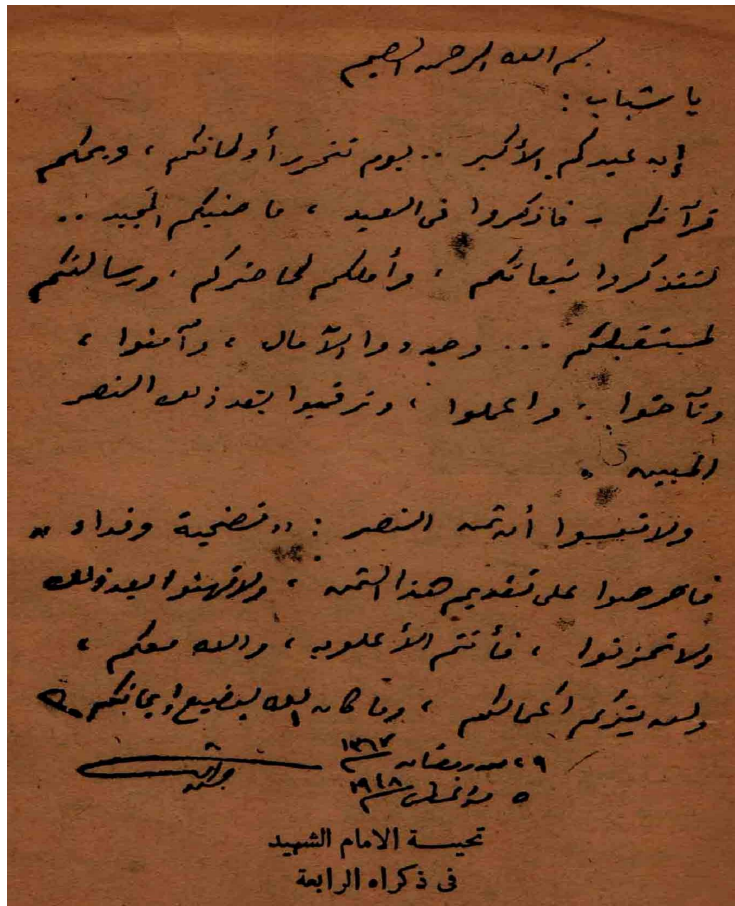 بسم الله الرحمن الرحيم
يا شباب :
إن عيدكم الأكبر .. يوم تتحرر أوطانكم ، ويحكم
قرآنكم - فاذكروا في العيد ، ماضيكم المجيد ..
لتتذكروا تبعاتكم ، وأملكم لحاضركم ، ورسالتكم
لمستقبلكم ... وجددوا الآمال ، وآمنوا ،
وتآخوا ، واعملوا ، وترقبوا بعد ذلك النصر
المبين .
ولا تنسوا أن ثمن النصر : " تضحية وفداء "
فاحرصوا على تقديم هذا الثمن ، ولا تهنوا بعد ذلك
ولا تحزنوا ، فأنتم الأعلون ، والله معكم ،
ولن يتركم أعمالكم ، وما كان الله ليضيع إيمانكم
٢٩ من رمضان ١٣٦٧
٥ من أغسطس ١٩٤٨
تحيــة الامام الشهيد
فى ذكراه الرابعة